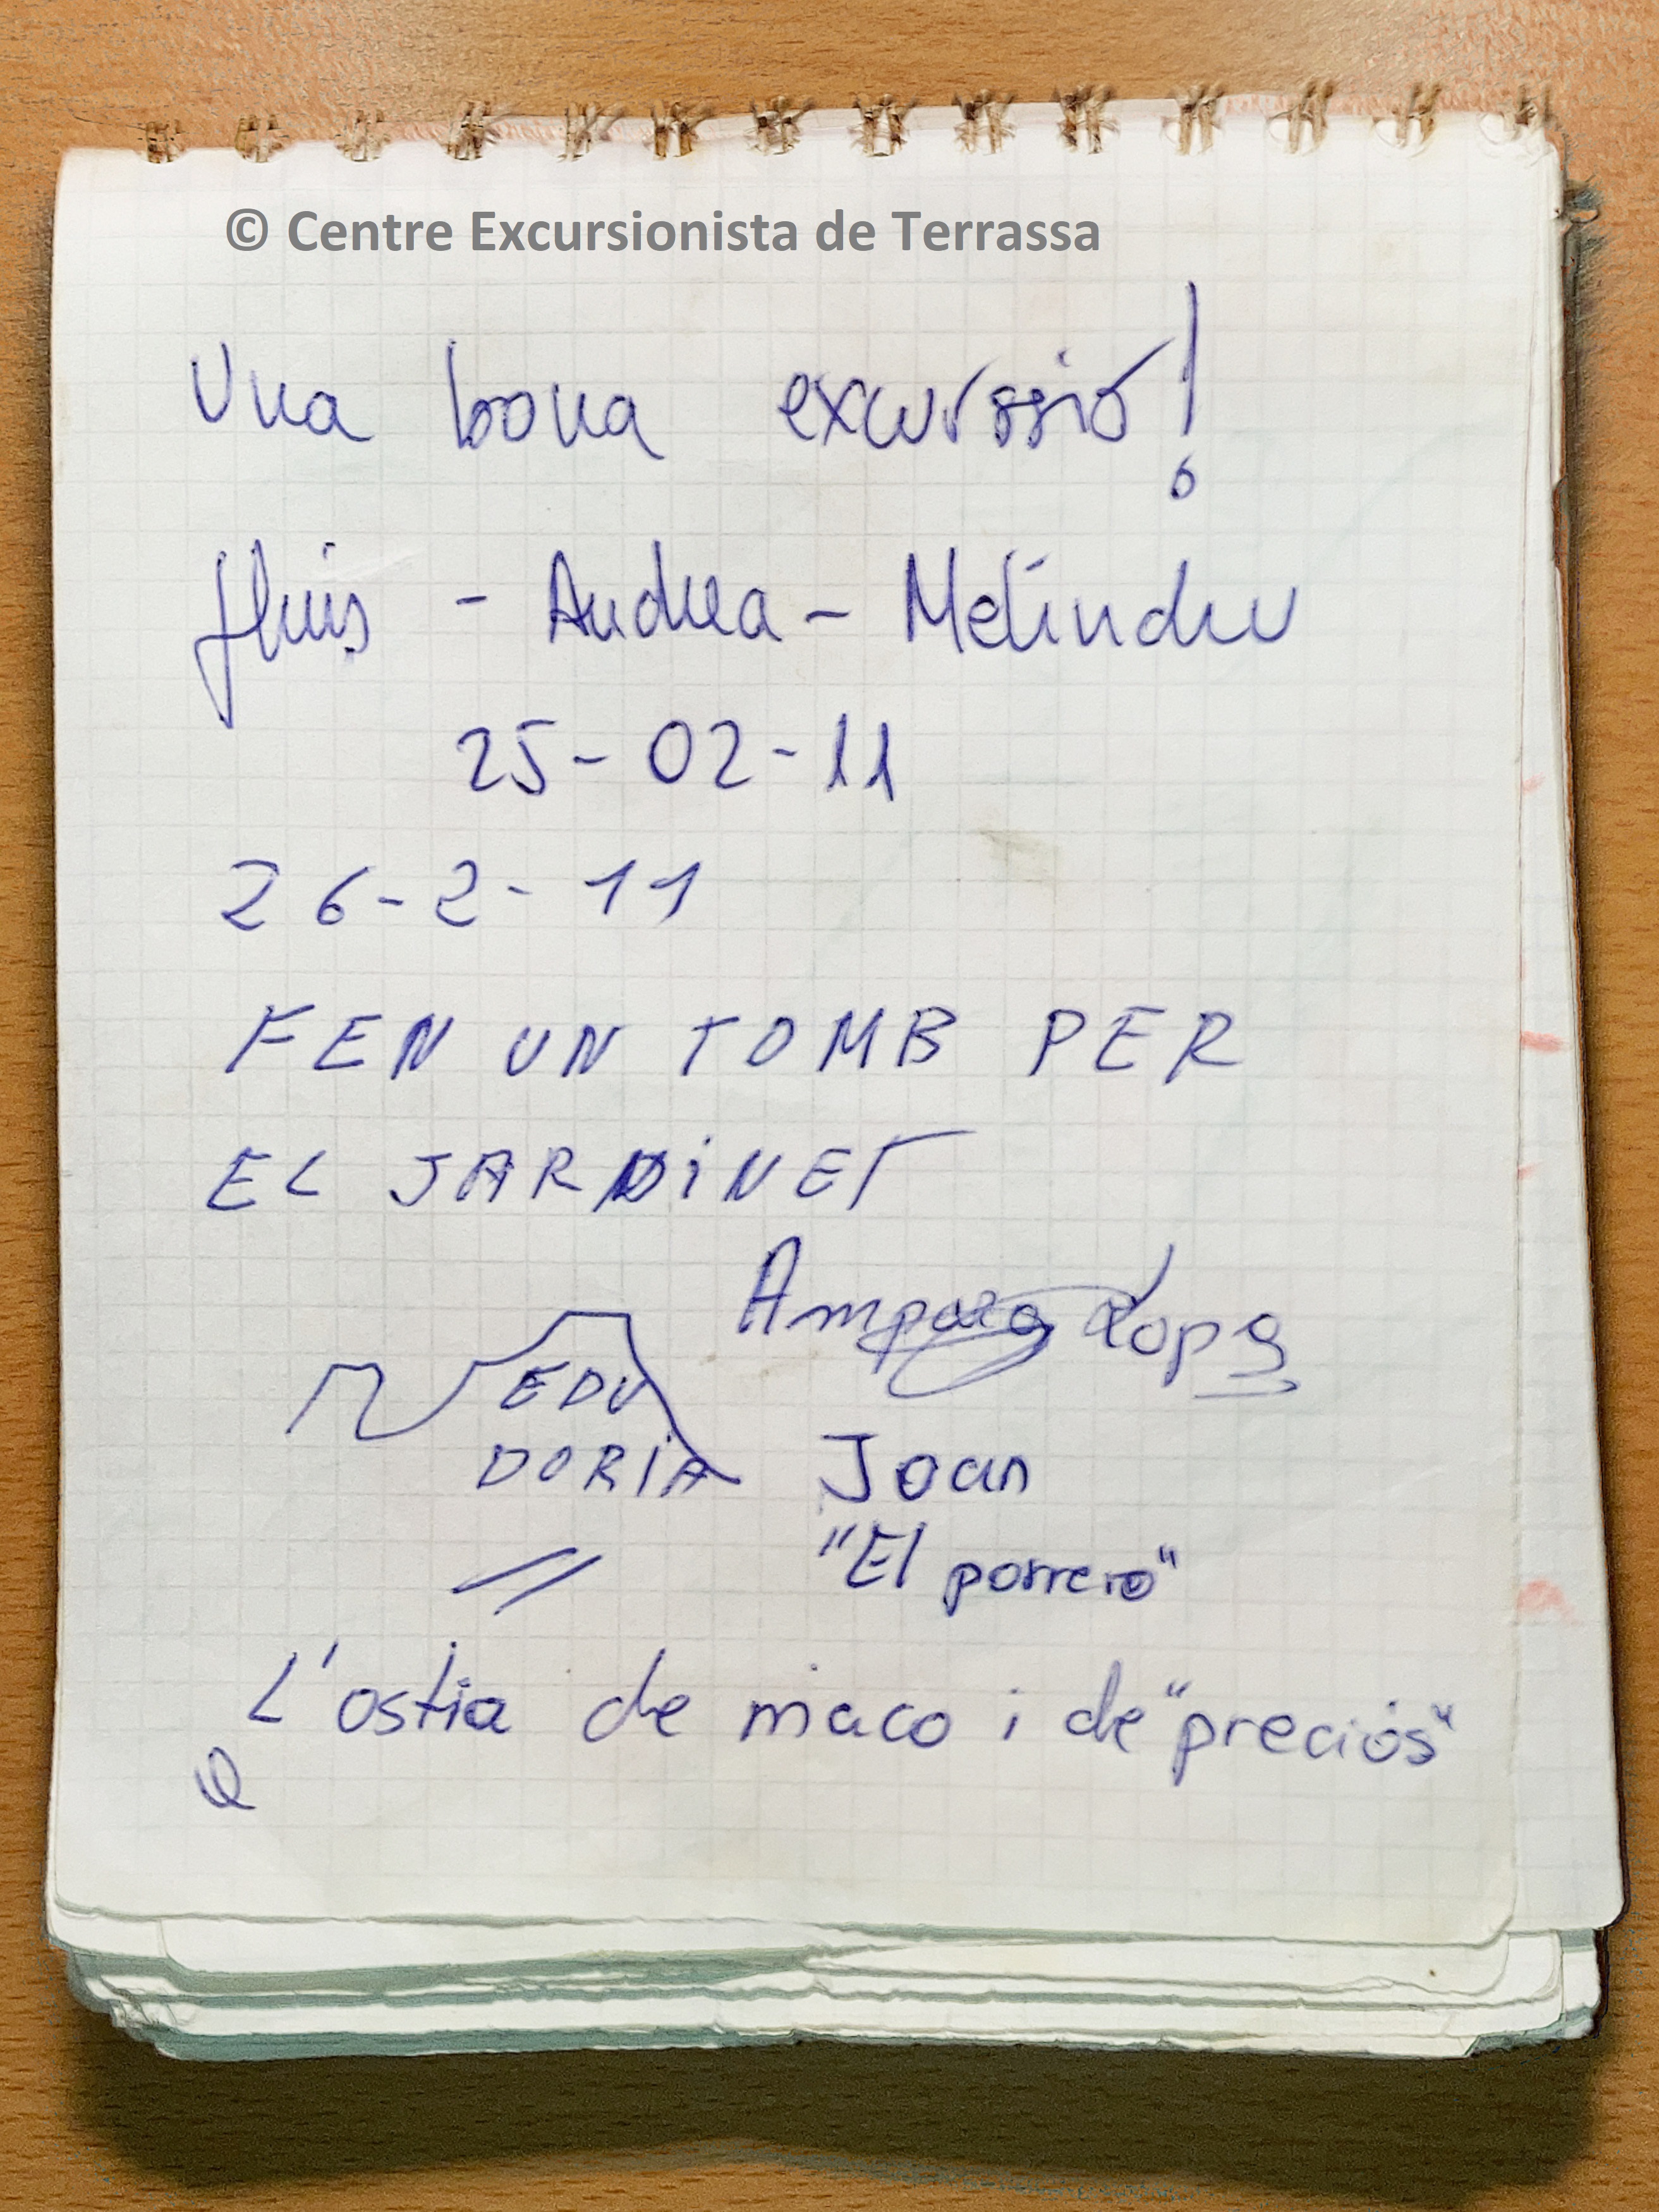 © Centre Excursionista de Terrassa
Una bona excurssió!
Lluis - Andrea - Melindru
25-02-11
26-2-11
FEN UN TOMB PER
EL JARDINET
Amparo Lopez
EDU
DORIA
Joan
"El porrero"
L'ostia de maco i de "preciós"